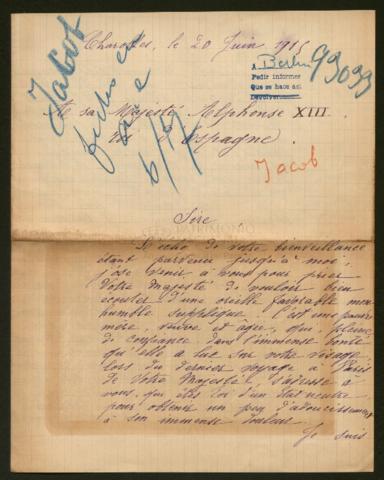 Charolles, le 20 Juin 1915
A Berlin
93033
Pedir informes
Que se hace así
Devolver
Jacob
A sa Majesté Alphonse XIII
roi d'Espagne.
Jacob
Sire
PATRIMONIO
L'écho de votre bienveillance
étant parvenu jusqu'à moi,
j'ose venir à vous pour prier
Votre Majesté de vouloir bien
écouter d'une oreille favorable mon
humble supplique. C'est une pauvre
mère, veuve et âgée, qui, pleine
de confiance dans l'immense bonté
qu'elle a lue sur votre visage,
lors du dernier voyage à Paris
de Votre Majesté s'adresse à
vous, qui êtes roi d'un état neutre,
pour obtenir un peu d'adoucissement
à son immense douleur.
Je suis